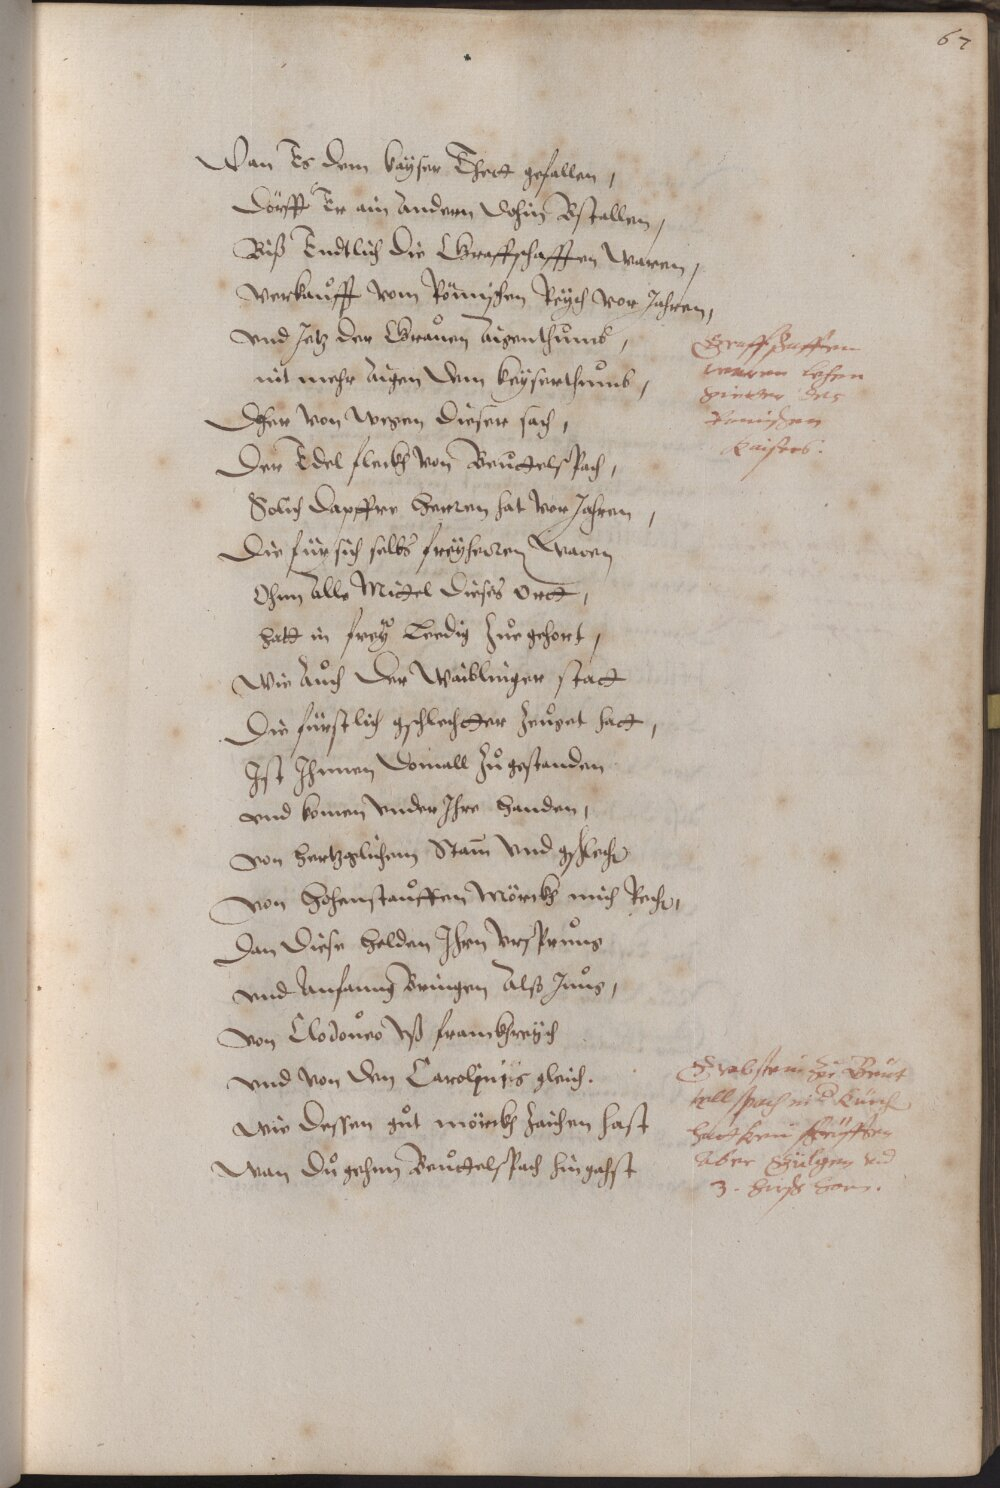 67
Wan Es dem kayser Thett gefallen,
Dörfft Er ain Andern dohin Bstallen,
Biß Endtlich die Graffschafften waren,
Verkaufft vom Römischen Reych vor Jahren,
vnd Jetz der Grauen Aigenthumb,
nit mehr Aigen dem keyserthumb,
Dher von wegen dieser sach,
Der Edel fleckh von Beuttelspach,
Solch dapffre Herren hat vor Jahren,
Die für sich selbs freyherren waren
Ohnn Alle Mittel dieses Ortt,
hatt in frey Leedig Zue gehort,
Wie Auch der Waiblinger statt
Die fürstlich gschlechtter Zeuget hatt,
Ist Ihnnen domall Zugestanden
vnd komen vnder Ihre handen,
von hertzoglichem Stam vnd gschlecht
von Hohenstauffen Mörckh mich Recht,
Dan diese helden Ihrn vrsprung
vnd Anfanng Bringen Alß Jung,
von Clodoueo vß franckhreych
vnd von den Carolinis gleich.
wie dessen gut mörckh Zaichen hast
Wan du gehnn Beuttelspach hingahst
Graffschafften
waren lehen
des
Romischen
kaisers.
Grabstein zu Beut
tellspach in d Kürch
hatt kein
aber vnd
3. hirsch horn.